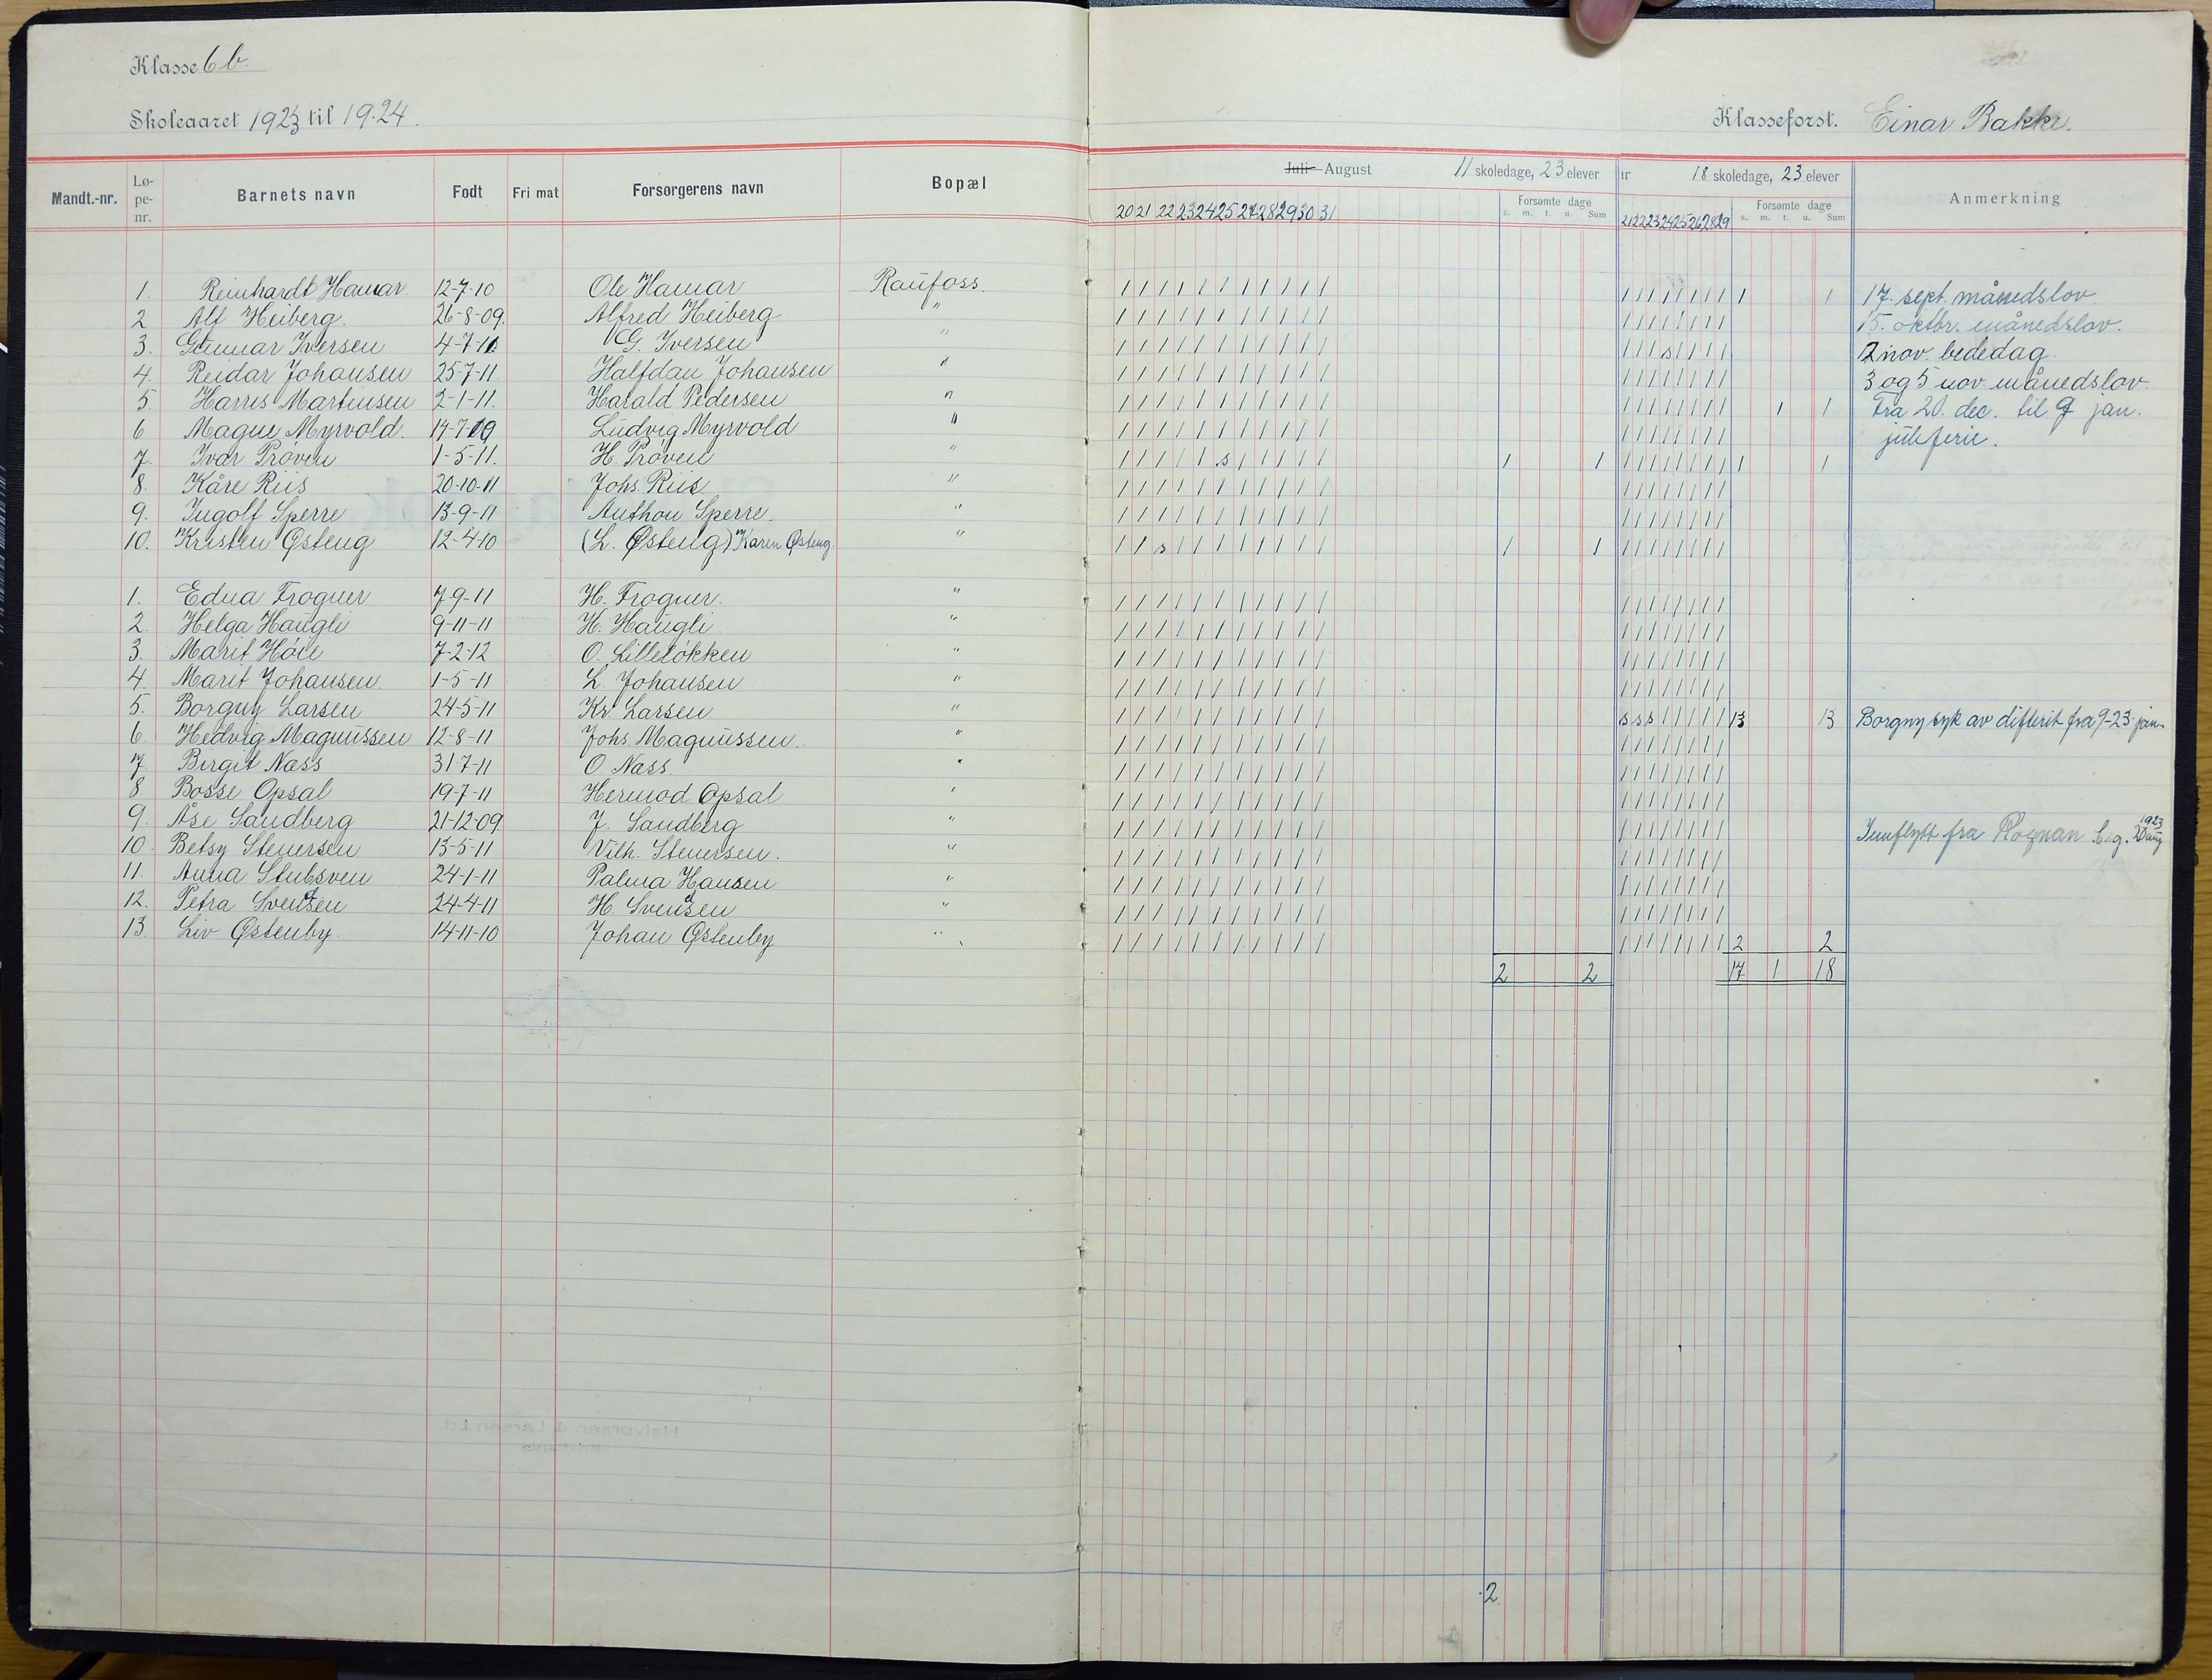 Klasse 6 b.
Skoleaaret 1923 til 19.24.
Klasseforst. Einar Bakke.
Mandt.-nr. Lø-pe-nr. Barnets navn Født Fri mat Forsørgerens navn Bopæl Juli- August 11 skoledage, 23 elever 18 skoledage, 23 elever Anmerkning
Forsømte dage Forsømte dage
20 21 22 23 24 25 27 28 29 30 31 s. m. t. u. Sum 21 22 23 24 25 26 28 29 s. m. t. u. Sum
1. Reinhardt Hamar. 12-7-10 Ole Hamar Raufoss. / / / / / / / / / / / / / / / / / / / 1 1 17. sept. månedslov
2 Alf Heiberg. 26-8-09. Alfred Heiberg " / / / / / / / / / / / / / / / / / / / 15. oktbr. månedslov.
3. Gunnar Iversen 4-7-11. G. Iversen " / / / / / / / / / / / / / / s / / / / 2 nov. bededag.
4. Reidar Johansen 25-7-11. Halfdan Johansen " / / / / / / / / / / / / / / / / / / / 3 og 5 nov. månedslov.
5. Harris Martinsen 2-1-11. Harald Pedersen " / / / / / / / / / / / / / / / / / / / 1 1 Fra 20. dec. til 9 jan.
6 Magne Myrvold. 14-7-09 Ludvig Myrvold " / / / / / / / / / / / / / / / / / / / juleferie.
7. Ivar Prøven 1-5-11. H. Prøven " / / / / / s / / / / / 1 1 / / / / / / / / 1 1
8. Kåre Riis 20-10-11 Johs. Riis " / / / / / / / / / / / / / / / / / / /
9. Ingolf Sperre 13-9-11 Anthon Sperre. " / / / / / / / / / / / / / / / / / / /
10. Kristen Østeng 12-4-10 (L. Østeng) Karen Østeng. " / / s / / / / / / / / 1 1 / / / / / / / /
1. Edna Frogner 7-9-11 H. Frogner. " / / / / / / / / / / / / / / / / / / /
2. Helga Haugli 9-11-11 H. Haugli " / / / / / / / / / / / / / / / / / / /
3. Marit Høie 7-2-12 O. Lilleløkken " / / / / / / / / / / / / / / / / / / /
4. Marit Johansen. 1-5-11 L. Johansen " / / / / / / / / / / / / / / / / / / /
5. Borgny Larsen 24-5-11 Kr. Larsen " / / / / / / / / / / / s s s / / / / / 13 13 Borgny syk av difterit fra 9-23 jan.
6. Hedvig Magnussen 12-8-11 Johs. Magnussen. " / / / / / / / / / / / / / / / / / / /
7. Birgit Næss 31-7-11 O. Næss. " / / / / / / / / / / / / / / / / / / /
8. Bosse Opsal 19-7-11 Hermod Opsal " / / / / / / / / / / / / / / / / / / /
9. Åse Sandberg 21-12-09. J. Sandberg " / / / / / / / / / / / / / / / / / / / Innflytt fra Rognan beg. 20 aug 1923
10. Betsy Stenersen 13-5-11 Vilh. Stenersen. " / / / / / / / / / / / / / / / / / / /
11. Anna Stubsven 24-1-11 Palma Hansen " / / / / / / / / / / / / / / / / / / /
12. Petra Svendsen 24-4-11 H. Svendsen " / / / / / / / / / / / / / / / / / / /
13. Liv Østenby. 14-11-10 Johan Østenby " / / / / / / / / / / / / / / / / / / / 2 2
2 2 17 1 18
2.